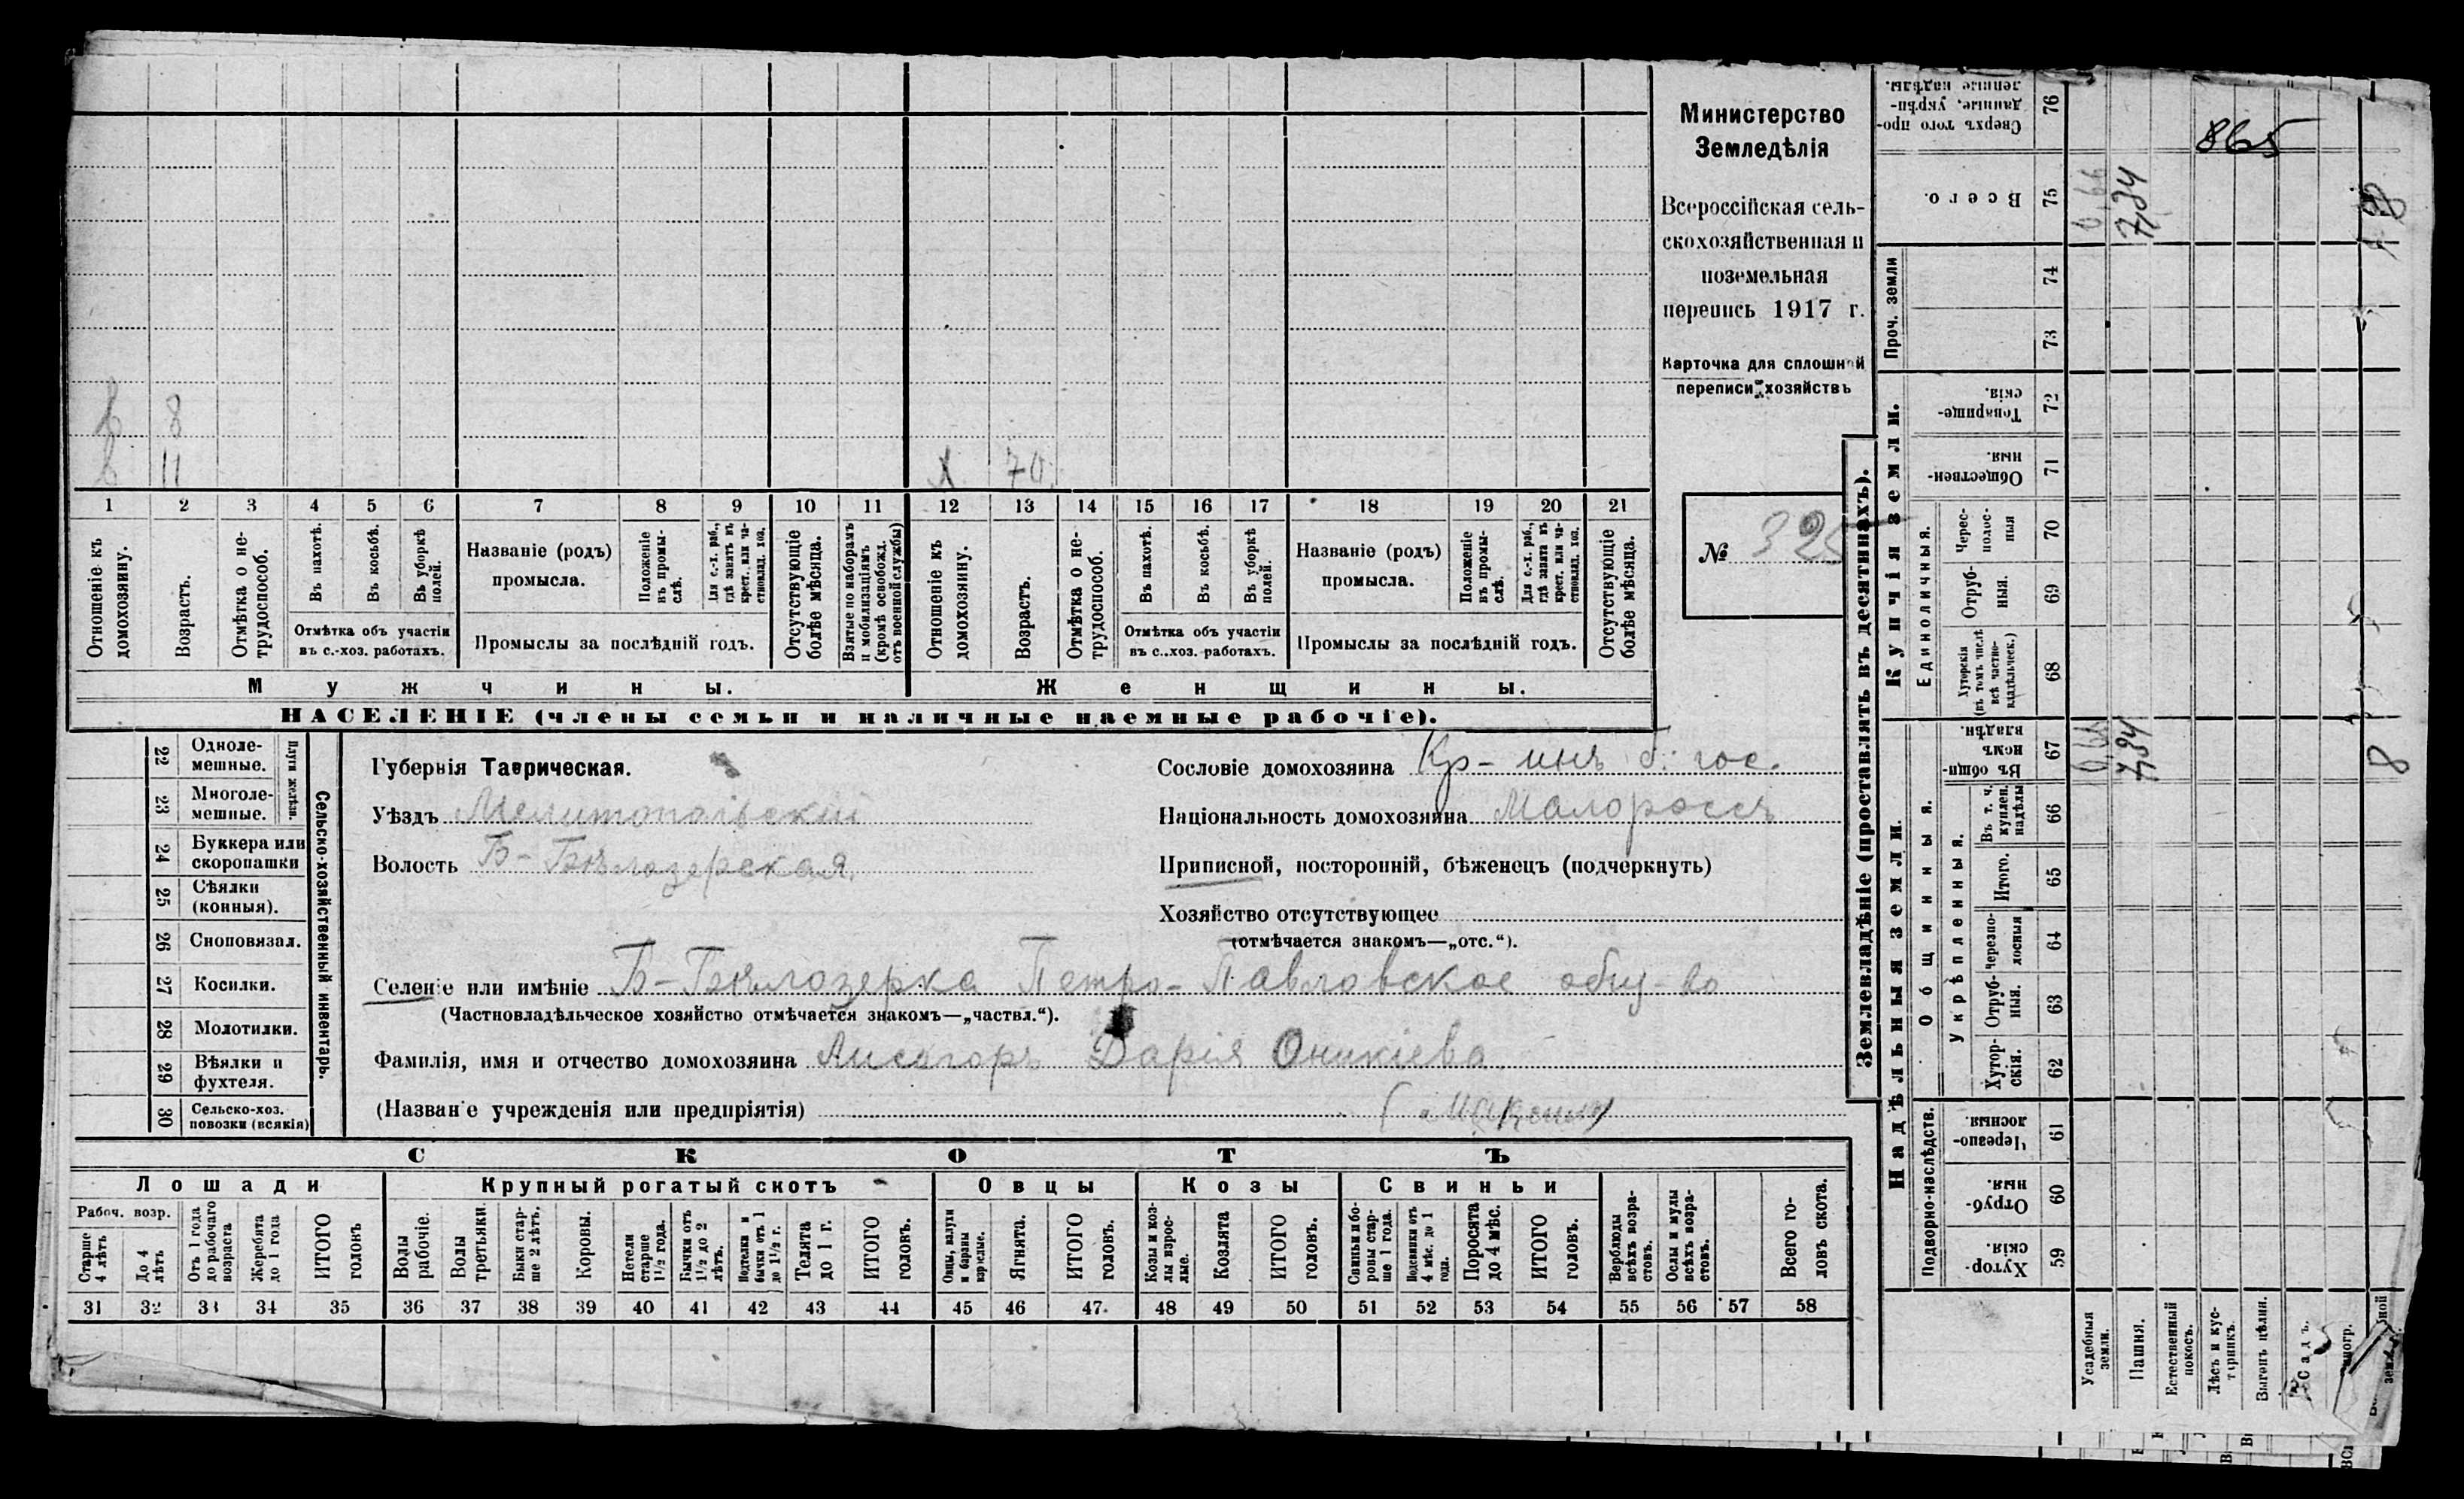 Министерство
Земледѣлія
Всероссійская сель-
скохозяйственная и
поземельная
перепись 1917 г.
Карточка для сплошной
переписи хозяйствъ
№ 325
в 8
в 11
х 70
1 2 3 4 5 6 7 8 9 10 11 12 13 14 15 16 17 18 19 20 21
Отношеніе къ домохозяину.
Возрастъ.
Отмѣтка о не-трудоспособ.
Въ пахотѣ.
Въ косьбѣ.
Въ уборкѣ полей.
Отмѣтка объ участіи
въ с.-хоз. работахъ.
Названіе (родъ)
промысла.
Положеніе въ промы-слѣ.
Для с.-х. раб., гдѣ занятъ въ крест. или ча-стновлад. хоз.
Промыслы за послѣдній годъ.
Отсутствующіе болѣе мѣсяца.
Взятые по наборамъ и мобилизаціямъ (кромѣ освобожд. отъ военной службы)
Отношеніе къ домохозяину.
Возрастъ.
Отмѣтка о не-трудоспособ.
Въ пахотѣ.
Въ косьбѣ.
Въ уборкѣ полей.
Отмѣтка объ участіи
въ с.-хоз. работахъ.
Названіе (родъ)
промысла.
Положеніе въ промы-слѣ.
Для с.-х. раб., гдѣ занята въ крест. или ча-стновлад. хоз.
Промыслы за послѣдній годъ.
Отсутствующіе болѣе мѣсяца.
Мужчины. Женщины.
НАСЕЛЕНІЕ (члены семьи и наличные наемные рабочіе).
22 Одноле-мешные.
23 Многоле-мешные.
Плуги желѣзн.
24 Буккера или скоропашки
25 Сѣялки (конныя).
26 Сноповязал.
27 Косилки.
28 Молотилки.
29 Вѣялки и фухтеля.
30 Сельско-хоз. повозки (всякія)
Сельско-хозяйственный инвентарь.
Губернія Таврическая.
Уѣздъ Мелитопольскій
Волость Б-Бѣлозерская.
Сословіе домохозяина Кр-инъ б. гос.
Національность домохозяина Малороссъ
Приписной, посторонній, бѣженецъ (подчеркнуть)
Хозяйство отсутствующее
(отмѣчается знакомъ—„отс.“).
Селеніе или имѣніе Б-Бѣлозерка Петро-Павловское общ-во
(Частновладѣльческое хозяйство отмѣчается знакомъ—„частвл.“).
Фамилія, имя и отчество домохозяина Лисогоръ Дарія Оникіева
(Названіе учрежденія или предпріятія)
СКОТЪ
Лошади Крупный рогатый скотъ Овцы Козы Свиньи
Рабоч. возр.
Старше 4 лѣтъ
До 4 лѣтъ
Отъ 1 года до рабочаго возраста
Жеребята до 1 года
ИТОГО головъ
Волы рабочіе.
Волы третьяки.
Быки стар-ше 2 лѣтъ.
Коровы.
Нетели старше 1½ года.
Бычки отъ 1½ до 2 лѣтъ.
Подтелки и бычки отъ 1 до 1½ г.
Телята до 1 г.
ИТОГО головъ.
Овцы, валухи и бараны взрослые.
Ягнята.
ИТОГО головъ.
Козы и коз-лы взрос-лые.
Козлята
ИТОГО головъ.
Свиньи и бо-ровы стар-ше 1 года.
Подсвинки отъ 4 мѣс. до 1 года.
Поросята до 4 мѣс.
ИТОГО головъ.
Верблюды всѣхъ возра-стовъ.
Ослы и мулы всѣхъ возра-стовъ.
Всего го-ловъ скота.
31 32 33 34 35 36 37 38 39 40 41 42 43 44 45 46 47 48 49 50 51 52 53 54 55 56 57 58
Землевладѣніе (проставлять въ десятинахъ).
Купчія земли.
Надѣльныя земли.
Сверхъ того про-данные, укрѣп-ленные надѣлы. 76
865
Всего. 75 0,66 7,34 8
Проч. земли 74 73
Товарище-скія 72
Обществен-ныя. 71
Единоличныя.
Черес-полос-ныя 70
Отруб-ныя. 69
Хуторскія (въ томъ числѣ всѣ частно-владѣльческ.) 68
Общинныя.
Въ общи-номъ владѣн. 67 0,66 7,34 8
Укрѣпленныя.
Въ т. ч. куплен. надѣлы 66
Итого. 65
Черезпо-лосныя 64
Отруб-ныя. 63
Хутор-скія. 62
Подворно-наслѣдств.
Черезпо-лосныя. 61
Отруб-ныя 60
Хутор-скія. 59
Усадебныя земли.
Пашня.
Естественный покосъ.
Лѣсъ и кус-тарникъ.
Выгонъ цѣлин.
Садъ.